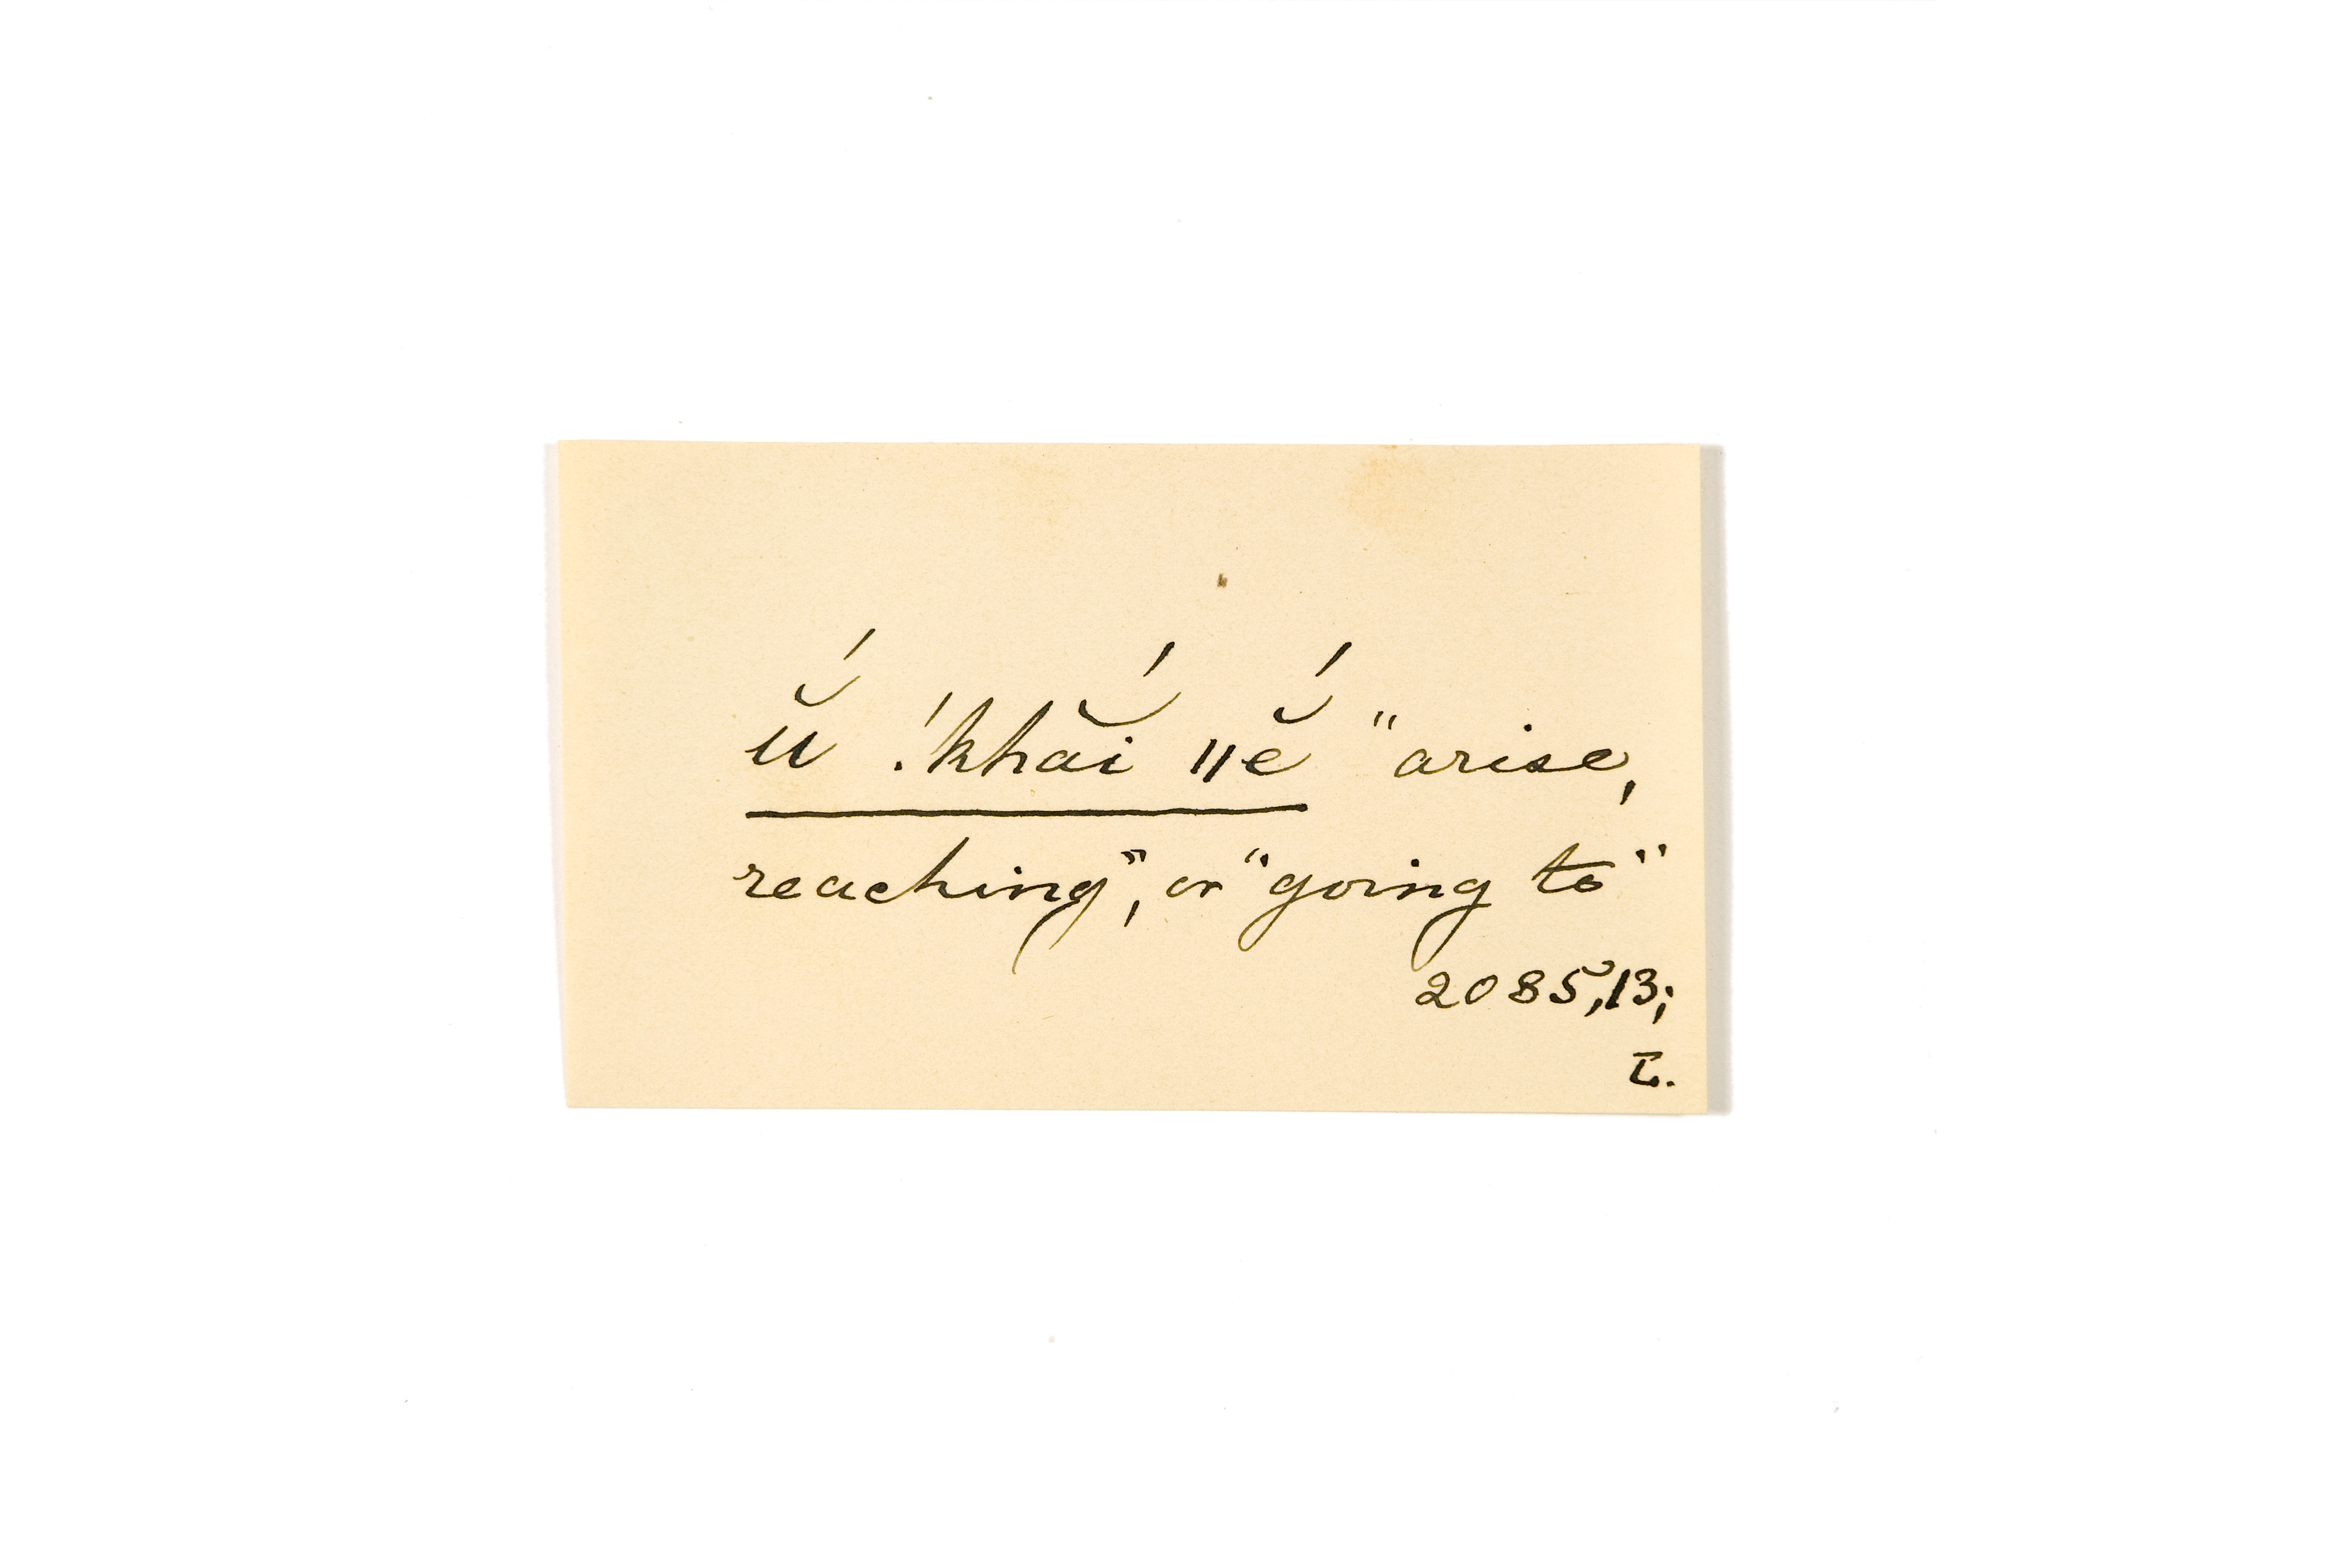 ŭ́ !khắi ǁĕ́ "arise,
reaching", or "going to"
2085,13;